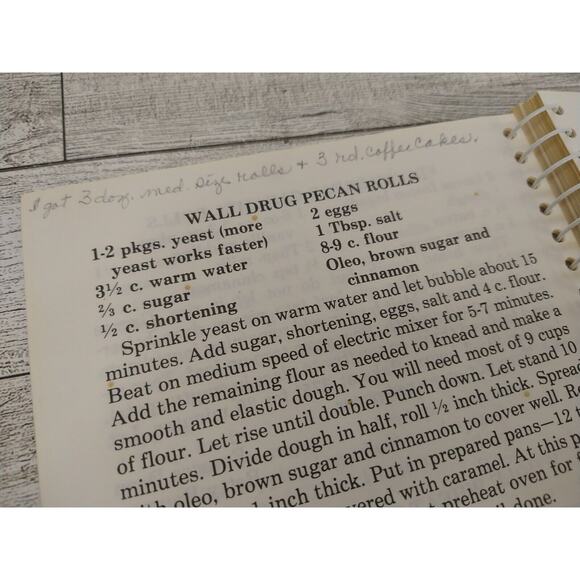 I got 3 doz. med. size rolls + 3 rd. coffee cakes.
WALL DRUG PECAN ROLLS
1-2 pkgs. yeast (more
yeast works faster)
3½ c. warm water
⅔ c. sugar
½ c. shortening
2 eggs
1 Tbsp. salt
8-9 c. flour
Oleo, brown sugar and
cinnamon
Sprinkle yeast on warm water and let bubble about 15
minutes. Add sugar, shortening, eggs, salt and 4 c. flour.
Beat on medium speed of electric mixer for 5-7 minutes.
Add the remaining flour as needed to knead and make a
smooth and elastic dough. You will need most of 9 cups
of flour. Let rise until double. Punch down. Let stand 10
minutes. Divide dough in half, roll ½ inch thick. Spread
oleo, brown sugar and cinnamon to cover well.
inch thick. Put in prepared pans—12
with caramel. At this
preheat oven for
done.